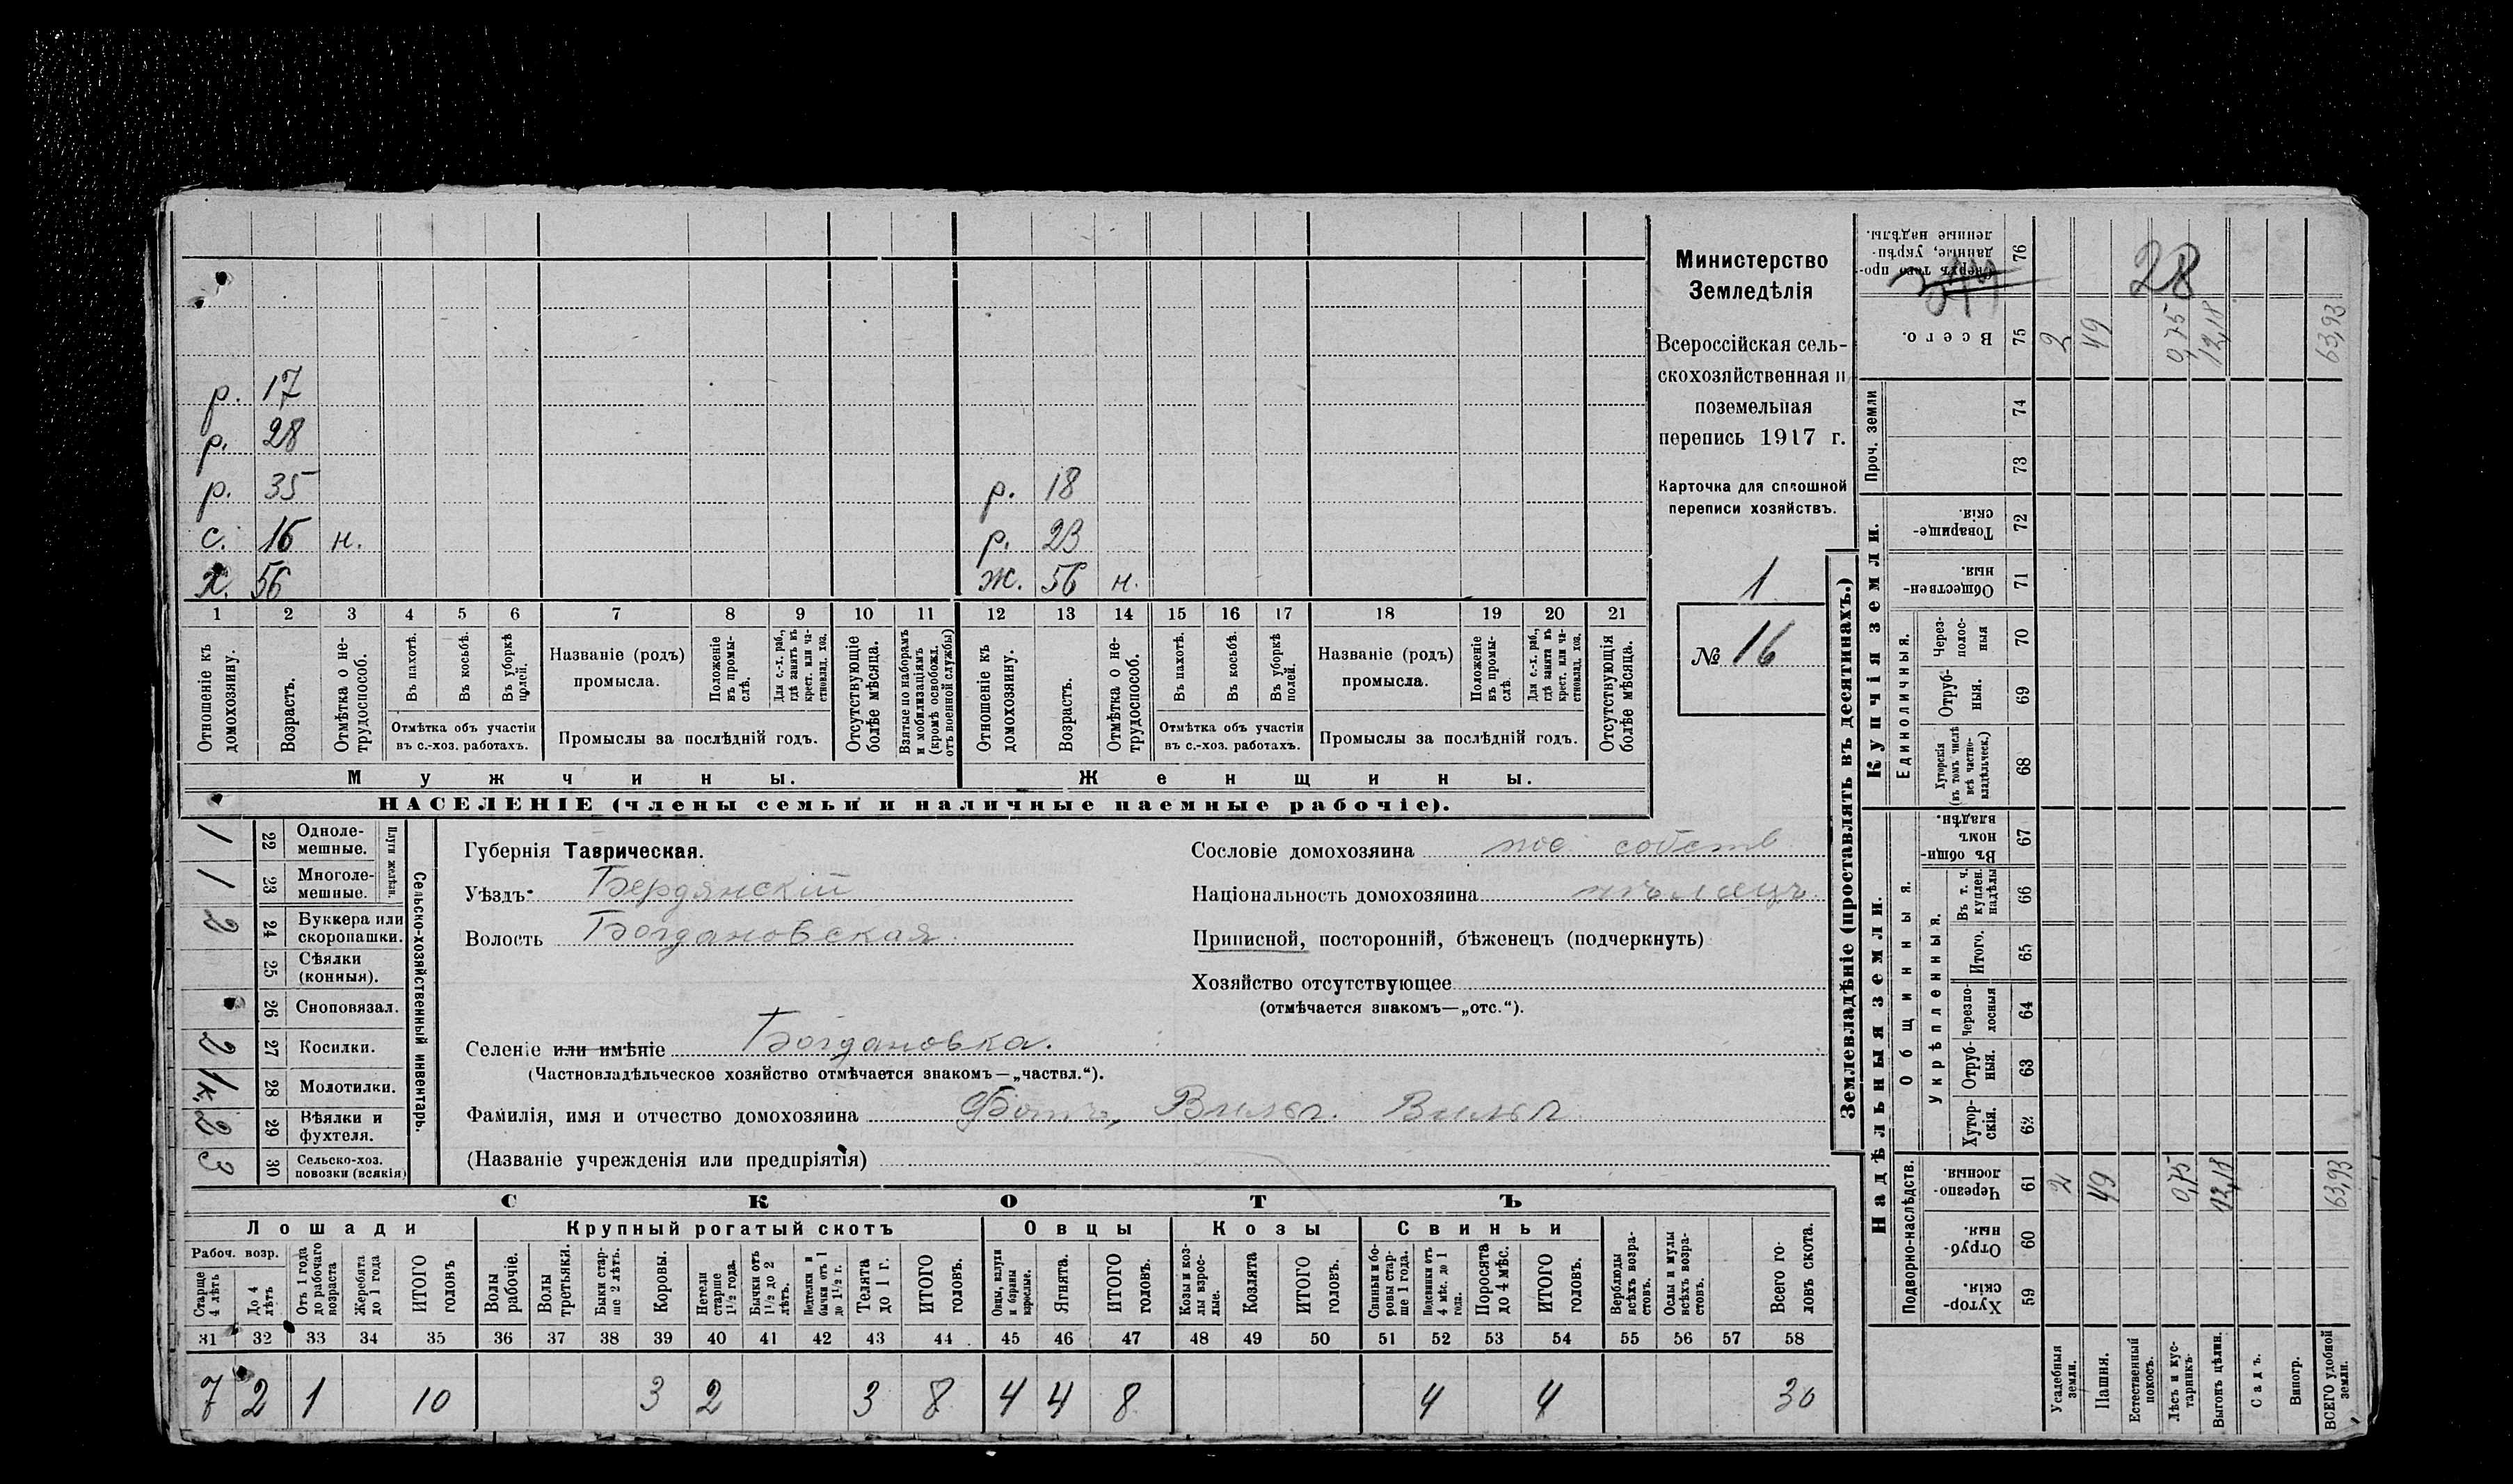 р. 17
р. 28
р. 35
р. 18
с. 16 н.
р. 23
х. 56
ж. 56 н.
1 2 3 4 5 6 7 8 9 10 11 12 13 14 15 16 17 18 19 20 21
Отношеніе къ домохозяину.
Возрастъ.
Отмѣтка о не-
трудоспособ.
Въ пахотѣ.
Въ косьбѣ.
Въ уборкѣ полей.
Отмѣтка объ участіи
въ с.-хоз. работахъ.
Названіе (родъ)
промысла.
Положеніе въ промы-
слѣ.
Для с.-х. раб., гдѣ занятъ въ крест. или ча-
стновлад. хоз.
Промыслы за послѣдній годъ.
Отсутствующіе болѣе мѣсяца.
Взятые по наборамъ и мобилизаціямъ (кромѣ освобожд. отъ военной службы)
Отношеніе къ домохозяину.
Возрастъ.
Отмѣтка о не-
трудоспособ.
Въ пахотѣ.
Въ косьбѣ.
Въ уборкѣ полей.
Отмѣтка объ участіи
въ с.-хоз. работахъ.
Названіе (родъ)
промысла.
Положеніе въ промы-
слѣ.
Для с.-х. раб., гдѣ занята въ крест. или ча-
стновлад. хоз.
Промыслы за послѣдній годъ.
Отсутствующія болѣе мѣсяца.
Мужчины.
Женщины.
НАСЕЛЕНІЕ (члены семьи и наличные наемные рабочіе).
Министерство
Земледѣлія
Всероссійская сель-
скохозяйственная и
поземельная
перепись 1917 г.
Карточка для сплошной
переписи хозяйствъ.
1
№ 16
Сельско-хозяйственный инвентарь.
Плуги желѣзн.
1 22 Одноле-
мешные.
1 23 Многоле-
мешные.
2 24 Буккера или
скоропашки.
25 Сѣялки
(конныя).
26 Сноповязал.
2 27 Косилки.
1к. 28 Молотилки.
2 29 Вѣялки и
фухтеля.
3 30 Сельско-хоз.
повозки (всякія)
Губернія Таврическая.
Уѣздъ Бердянскій
Волость Богдановская
Селеніе или имѣніе Богдановка.
(Частновладѣльческое хозяйство отмѣчается знакомъ—„частвл.“).
Фамилія, имя и отчество домохозяина Вильг. Вильг.
(Названіе учрежденія или предпріятія)
Сословіе домохозяина пос. собств
Національность домохозяина нѣмецъ.
Приписной, посторонній, бѣженецъ (подчеркнуть)
Хозяйство отсутствующее
(отмѣчается знакомъ—„отс.“).
СКОТЪ
Лошади
Крупный рогатый скотъ
Овцы
Козы
Свиньи
Рабоч. возр.
Старше 4 лѣтъ
До 4 лѣтъ
Отъ 1 года до рабочаго возраста
Жеребята до 1 года
ИТОГО головъ
Волы рабочіе.
Волы третьяки.
Быки стар-
ше 2 лѣтъ.
Коровы.
Нетели старше 1½ года.
Бычки отъ 1½ до 2 лѣтъ.
Подтелки и бычки отъ 1 до 1½ г.
Телята до 1 г.
ИТОГО головъ.
Овцы, валухи и бараны взрослые.
Ягнята.
ИТОГО головъ.
Козы и коз-
лы взрос-
лые.
Козлята
ИТОГО головъ.
Свиньи и бо-
ровы стар-
ше 1 года.
Подсвинки отъ 4 мѣс. до 1 года.
Поросята до 4 мѣс.
ИТОГО головъ.
Верблюды всѣхъ возра-
стовъ.
Ослы и мулы всѣхъ возра-
стовъ.
Всего го-
ловъ скота.
31 32 33 34 35 36 37 38 39 40 41 42 43 44 45 46 47 48 49 50 51 52 53 54 55 56 57 58
7 2 1 10 3 2 3 8 4 4 8 4 4 30
Землевладѣніе (проставлять въ десятинахъ.)
Купчія земли.
Надѣльныя земли.
Сверхъ того про-
данные, укрѣп-
ленные надѣлы.
76
28
Всего.
75
2 49 0,75 12,18 63,93
Проч. земли
74
73
Товарище-
скія.
72
Обществен-
ныя.
71
Единоличныя.
Через-
полос-
ныя
70
Отруб-
ныя.
69
Хуторскія (въ томъ числѣ всѣ частно-
владѣльческ.)
68
Общинныя.
Въ общи-
номъ
владѣн.
67
Укрѣпленныя.
Въ т. ч. куплен. надѣлы
66
Итого.
65
Черезпо-
лосныя
64
Отруб-
ныя.
63
Хутор-
скія.
62
Подворно-наслѣдств.
Черезпо-
лосныя.
61
2 49 0,75 12,18 63,93
Отруб-
ныя.
60
Хутор-
скія.
59
Усадебныя земли.
Пашня.
Естественный покосъ.
Лѣсъ и кус-
тарникъ.
Выгонъ цѣлин.
Садъ.
Виногр.
ВСЕГО удобной земли.